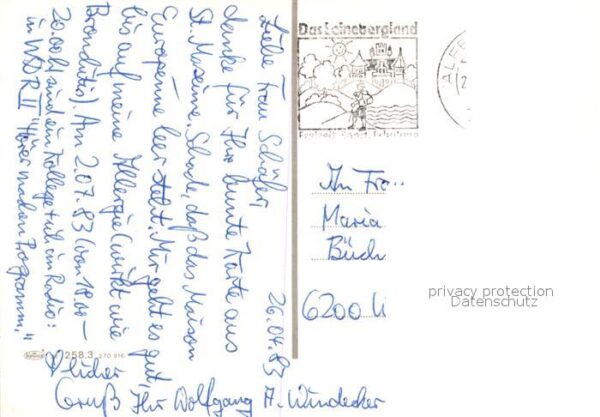 26.04.83
Liebe Frau Schäfer,
danke für Ihre bunte Karte aus
St. Maxime. Schade, daß das Maison
Européenne leer steht. Mir geht es gut,
bis auf meine Allergie (wirkt wie
Bronchitis). Am 2.07.83 (von 18.00–
20.00h) sind ein Kollege + ich im Radio:
in WDR II "Hier machen Programm."
Herzlicher
Gruß, Ihr Wolfgang A. Windecker
258.3 270 816
Das Leinebergland
ALFE
An Fra
Maria
Büch
6200 U
privacy protection
Datenschutz